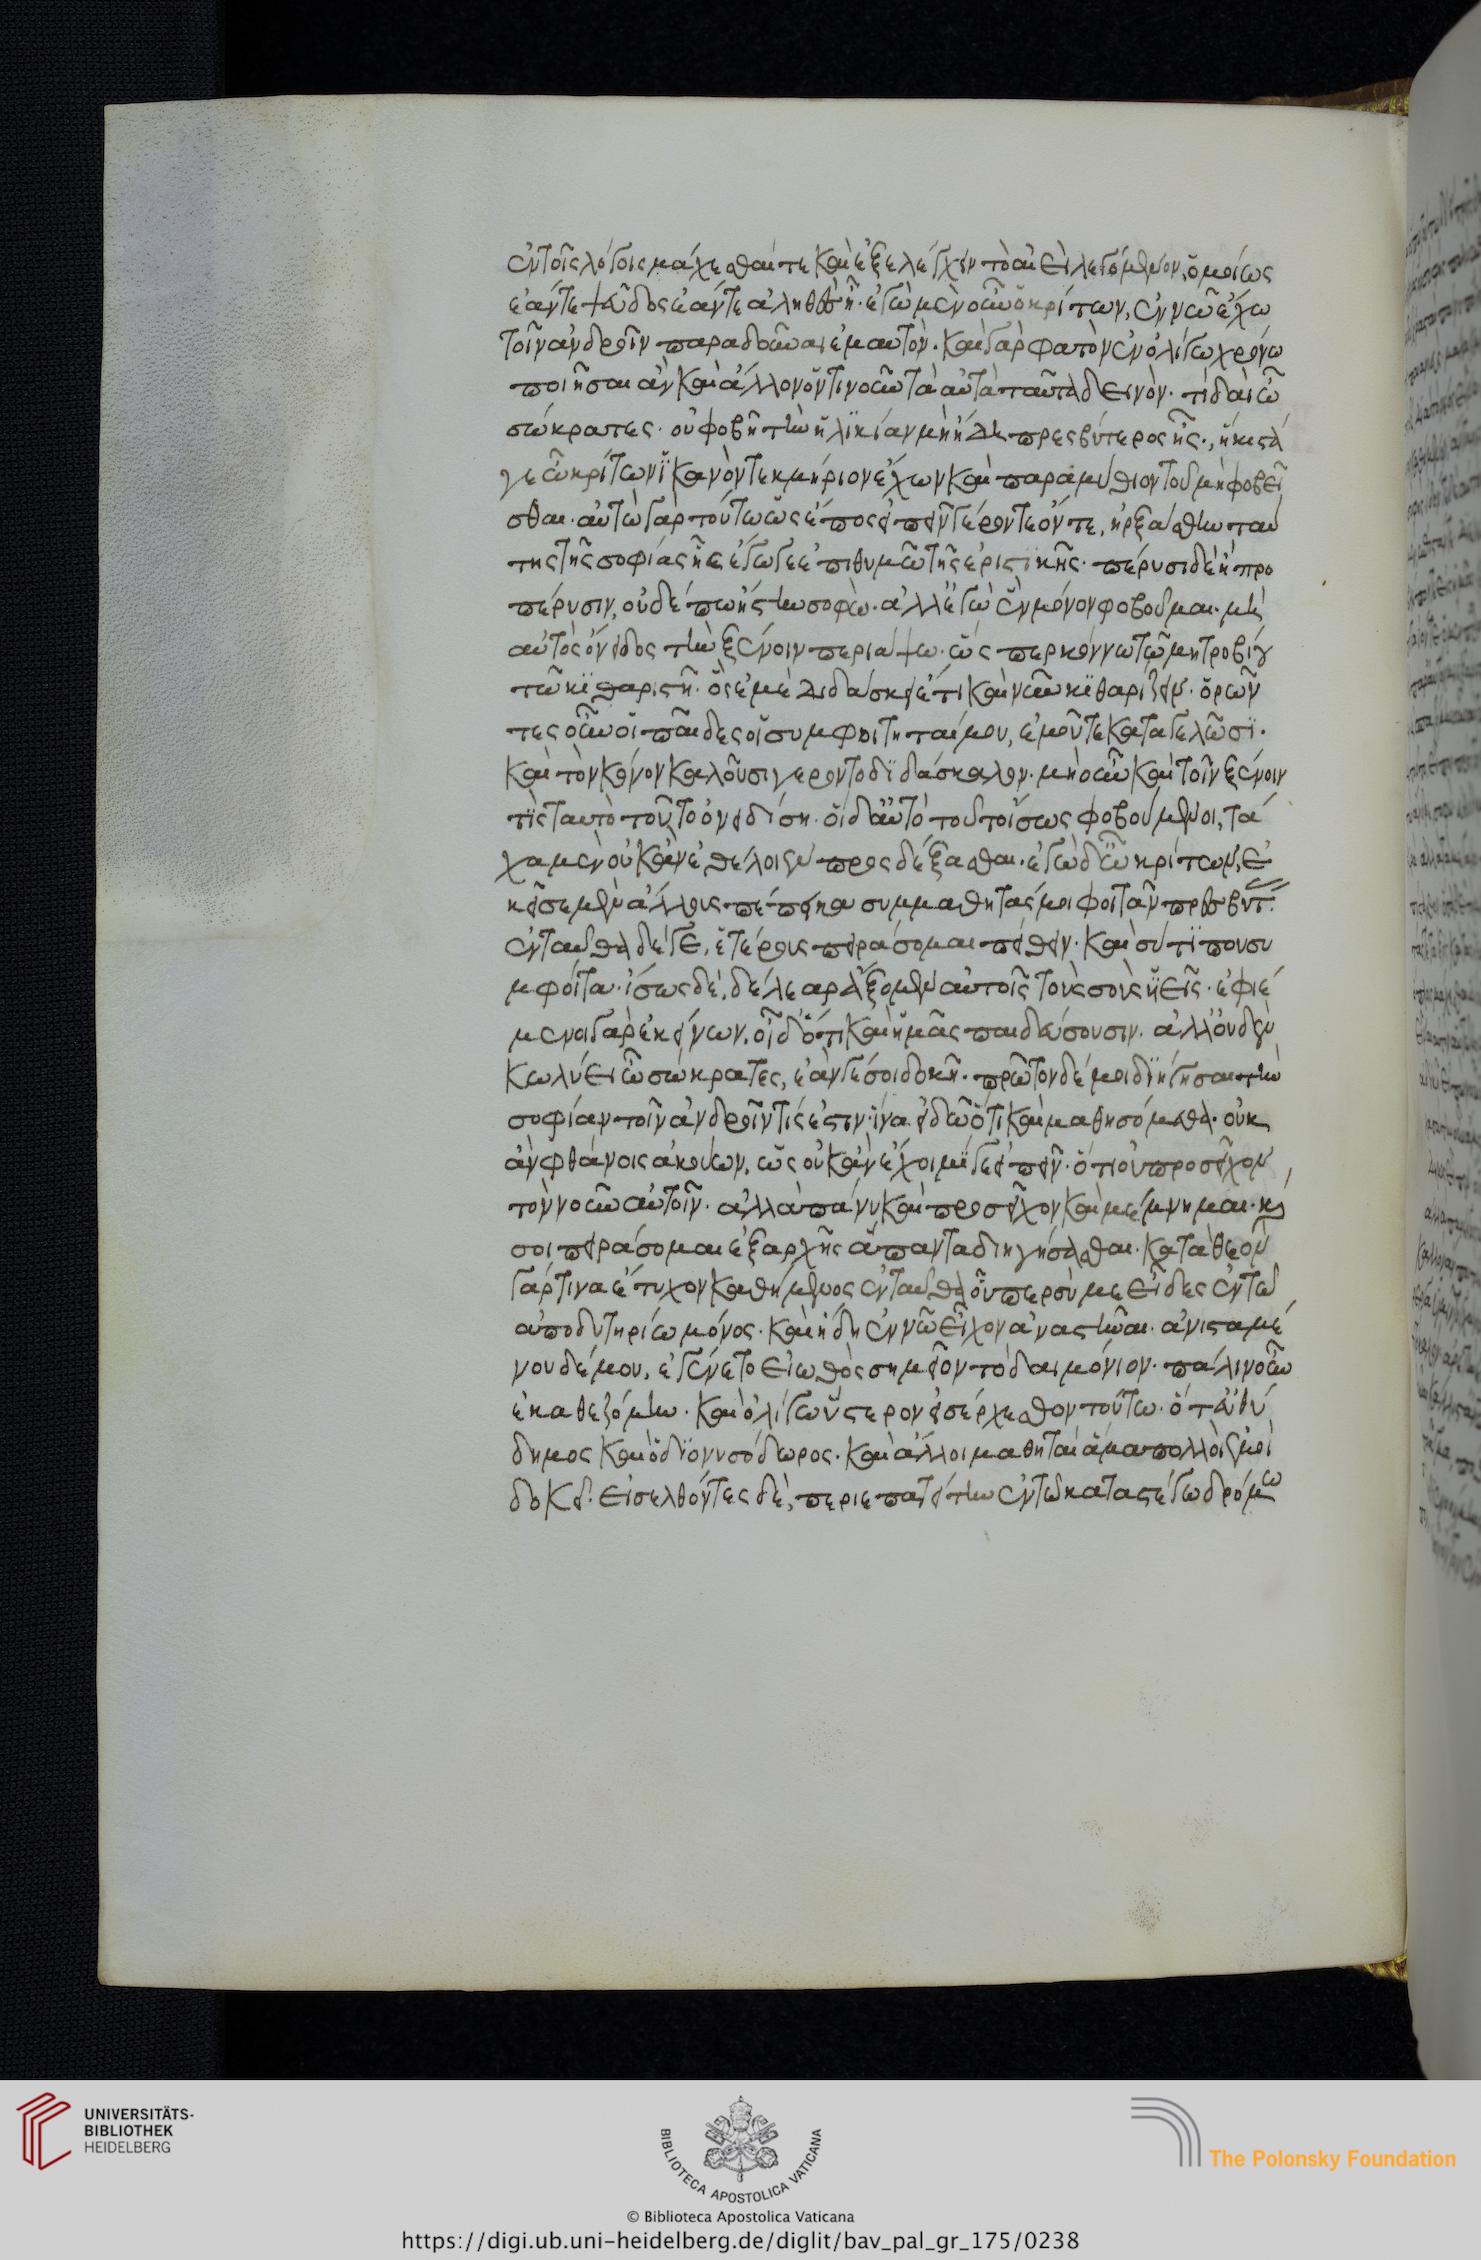 ἐν τοῖς λόγοις μάχεσθαί τε καὶ ἐξελέγχειν τὸ ἀεὶ λεγόμενον, ὁμοίως
ἐάν τε ψεῦδος ἐάν τε ἀληθὲς ᾖ. ἐγὼ μὲν οὖν ὦ κρίτων, ἐν νῶ ἔχω
τοῖν ἀνδροῖν παραδοῦναι ἐμαυτόν. καὶ γὰρ φατὸν ἐν ὀλίγω χρόνω
ποιῆσαι ἂν καὶ ἄλλον ὅντιν οὖν τὰ αὐτὰ ταῦτα δεινόν. τί δαὶ ὦ
σώκρατες. οὐ φοβῆ τὴν ἡλικίαν μὴ ἤδη πρεσβύτερος ῇς., ἥκιστά
γε ὦ κρίτων ἱκανὸν τεκμήριον ἔχων καὶ παραμύθιον τοῦ μὴ φοβεῖ
σθαι. αὐτὼ γὰρ τούτω ὡς ἔπος εἰπεῖν γέροντε ὄντε, ἠρξάσθην ταύ
της τῆς σοφίας ἧς ἔγωγε ἐπιθυμῶ τῆς ἐριστικῆς. πέρυσι δὲ ἢ προ
πέρυσιν, οὐδέπω ἤστην σοφώ. ἀλλ' ἐγὼ ἓν μόνον φοβοῦμαι. μὴ
αὐτὸς ὄνειδος τὴν ξένοιν περιάψω. ὥς περ κόννω τῶ μητροβίου
τῶ κιθαριστῆ. ὃς ἐμὲ διδάσκει ἔτι καὶ νῦν κιθαρίζειν. ὁρῶν
τες οὖν οἱ παῖδες οἱ συμφοιτηταί μου, ἐμοῦ τε καταγελῶσι.
καὶ τὸν κόννον καλοῦσι γεροντοδιδάσκαλον. μὴ οὖν καὶ τοῖν ξένοιν
τὶς ταυτὸ τοῦτο ὀνειδίση. οἱ δ' αὐτὸ τοῦτο ἴσως φοβούμενοι, τά
χα με οὐκ ἂν ἐθέλοιεν προσδέξασθαι. ἐγὼ δ' ὦ κρίτων, ἐ
κεῖσε μὲν ἄλλους πέπεικα συμμαθητάς μοι φοιτᾶν πρεσβύτ.
ἐνταῦθα δέ γε, ἑτέρους πειράσομαι πείθειν. καὶ σύ τί που συ
μφοίτα. ἴσως δὲ, δέλεαρ ἄξομεν αὐτοῖς τοὺς σοὺς ὑεῖς. ἐφιέ
μενοι γὰρ ἐκείνων, οἶδ' ὅτι καὶ ἡμᾶς παιδεύσουσιν. ἀλλ' οὐδὲν
κωλύει ὦ σώκρατες, ἐάν γέ σοι δοκῆ. πρῶτον δέ μοι διήγησαι τὴν
σοφίαν τοῖν ἀνδροῖν τίς ἐστιν. ἵνα εἰδῶ ὅτι καὶ μαθησόμεθα. οὐκ
ἂν φθάνοις ἀκούων, ὡς οὐκ ἂν ἔχοιμί γε εἰπεῖν. ὅτι οὐ προσεῖχον
τὸν νοῦν αὐτοῖν. ἀλλὰ πάνυ καὶ προσεῖχον καὶ μέμνημαι. καί
σοι πειράσομαι ἐξ ἀρχῆς ἅπαντα διηγήσασθαι. κατὰ θεὸν
γάρ τινα ἔτυχον καθήμενος ἐνταῦθα οὗπερ σύ με εἶδες ἐν τῶ
ἀποδυτηρίω μόνος. καὶ ἤδη ἐν νῶ εἶχον ἀναστῆναι. ἀνισταμέ
νου δέ μου, ἐγένετο εἰωθὸς σημεῖον τὸ δαιμόνιον. πάλιν οὖν
ἐκαθεζόμην. καὶ ὀλίγω ὕστερον εἰσέρχεσθον τούτω. ὅ τ' εὐθύ
δημος καὶ ὁ διονυσόδωρος. καὶ ἄλλοι μαθηταὶ ἅμα πολλοὶ ἐμοὶ
δοκεῖ. εἰσελθόντες δὲ, περιεπατείτην ἐν τῶ καταστέγω δρόμω
UNIVERSITÄTS-
BIBLIOTHEK
HEIDELBERG
BIBLIOTECA APOSTOLICA VATICANA
The Polonsky Foundation
© Biblioteca Apostolica Vaticana
https://digi.ub.uni-heidelberg.de/diglit/bav_pal_gr_175/0238